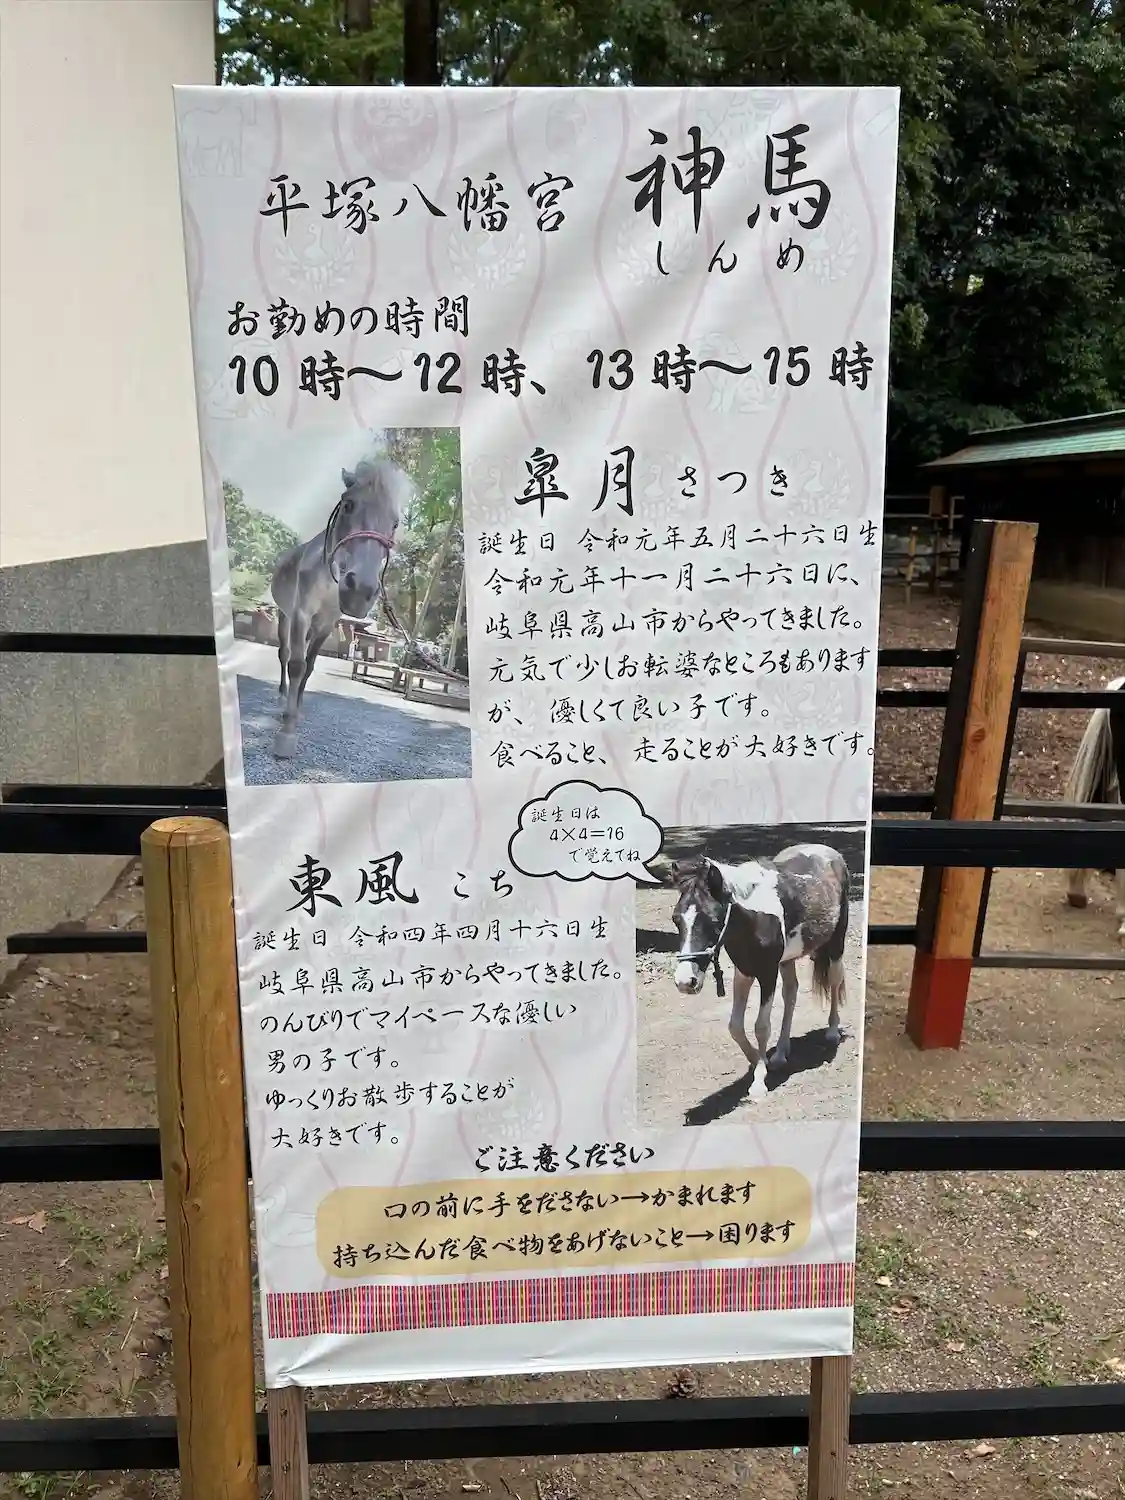 平塚八幡宮 神馬
しんめ
お勤めの時間
10時〜12時、13時〜15時
皐月 さつき
誕生日 令和元年五月二十六日生
令和元年十一月二十六日に、
岐阜県高山市からやってきました。
元気で少しお転婆なところもあります
が、優しくて良い子です。
食べること、走ることが大好きです。
誕生日は
4×4=16
で覚えてね
東風 こち
誕生日 令和四年四月十六日生
岐阜県高山市からやってきました。
のんびりでマイペースな優しい
男の子です。
ゆっくりお散歩することが
大好きです。
ご注意ください
口の前に手をださない→かまれます
持ち込んだ食べ物をあげないこと→困ります